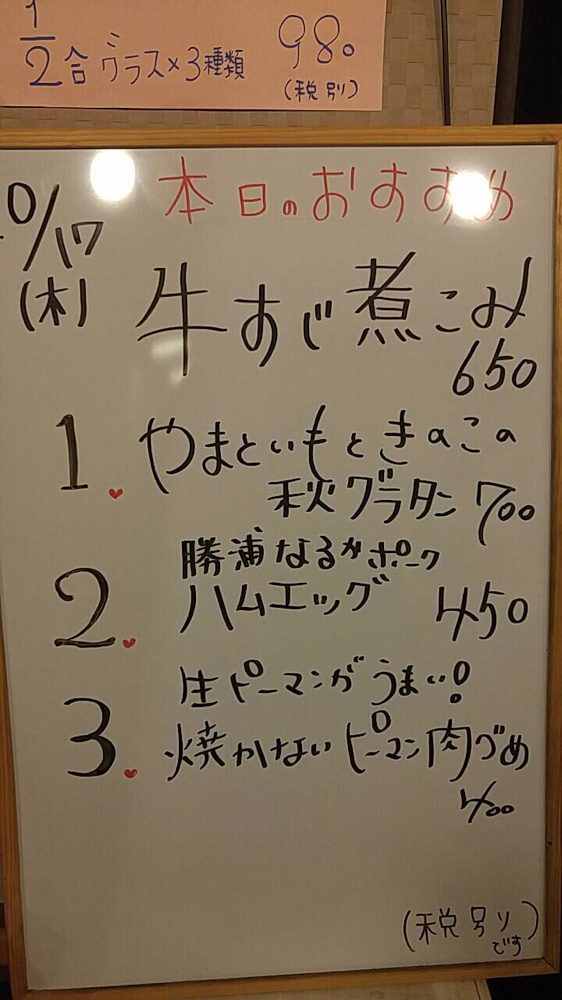 1/2合グラス×3種類 980
(税別)
本日のおすすめ
0/17
(木)
牛すじ煮こみ
650
1. やまといもときのこの
秋グラタン 700
勝浦なるかポーク
2. ハムエッグ 450
生ピーマンがうまい!
3. 焼かないピーマン肉づめ
400
(税別りです)